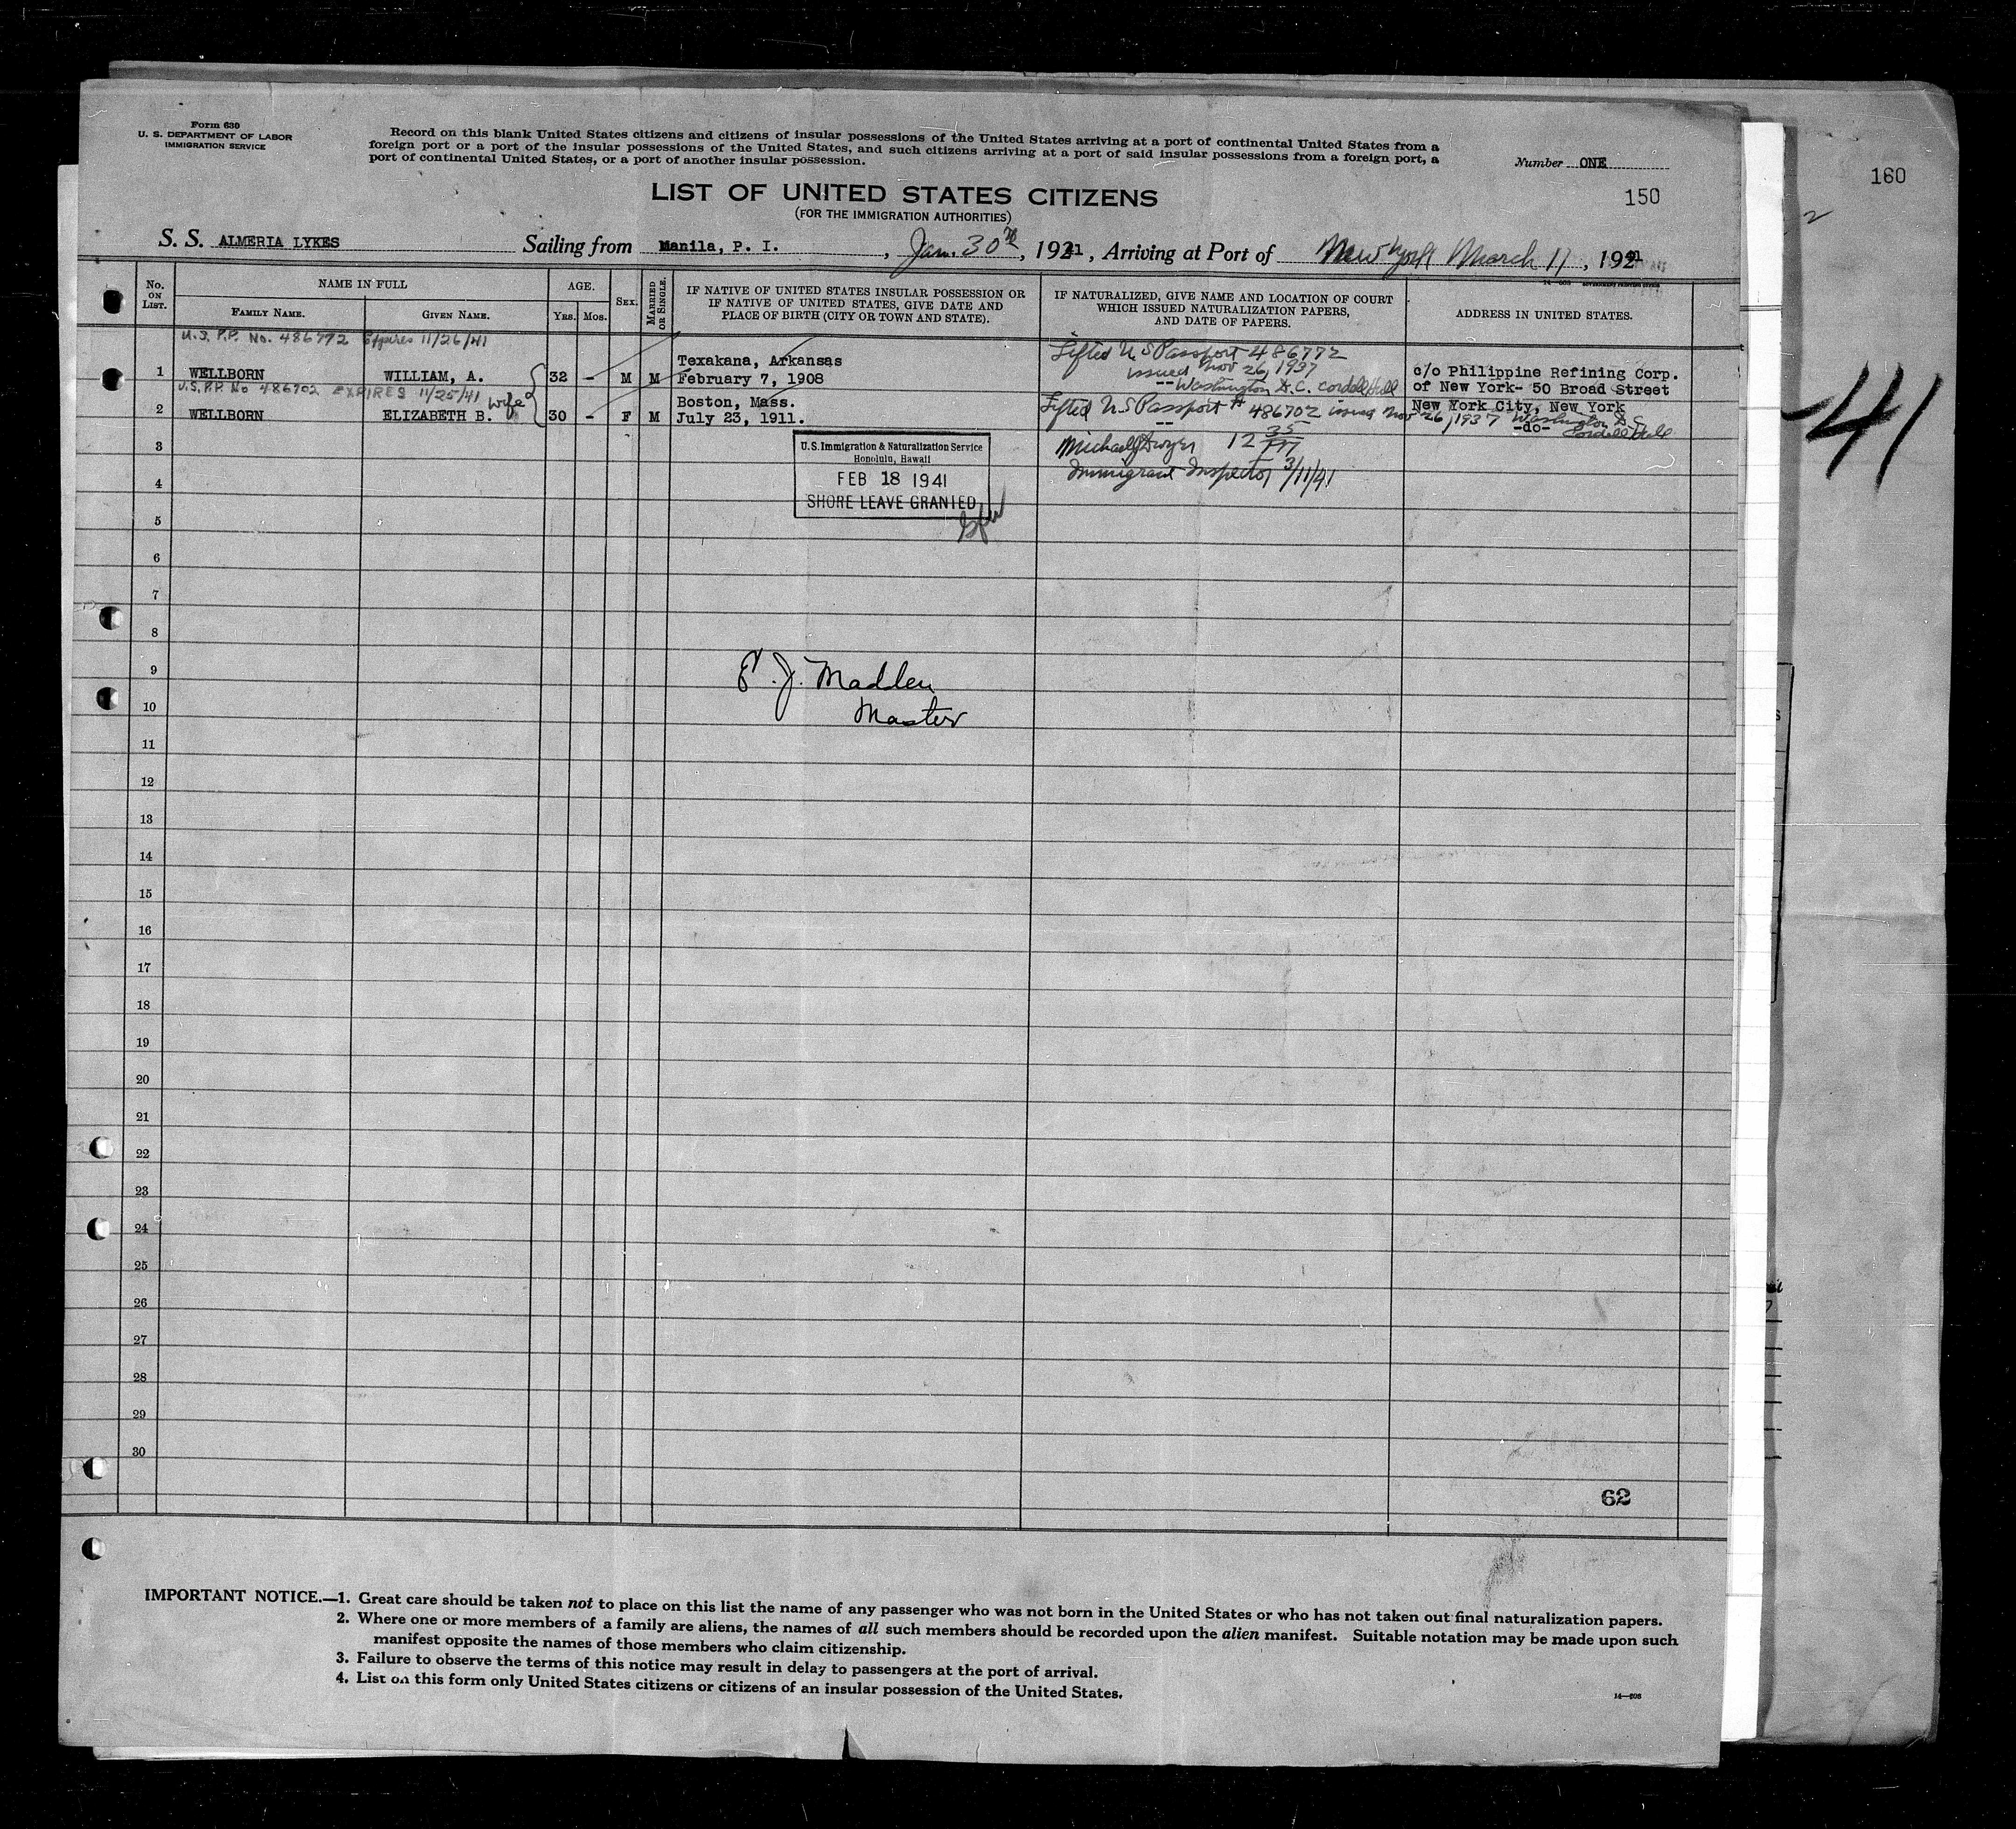 Form 630
U. S. DEPARTMENT OF LABOR
IMMIGRATION SERVICE
Record on this blank United States citizens and citizens of insular possessions of the United States arriving at a port of continental United States from a
foreign port or a port of the insular possessions of the United States, and such citizens arriving at a port of said insular possessions from a foreign port, a
port of continental United States, or a port of another insular possession.
Number ONE
150
160
LIST OF UNITED STATES CITIZENS
(FOR THE IMMIGRATION AUTHORITIES)
S. S. ALMERIA LYKES Sailing from Manila, P. I. , Jan. 30th , 1941 , Arriving at Port of New York March 11 , 1941
No. ON LIST.
NAME IN FULL
FAMILY NAME.
GIVEN NAME.
AGE.
YRS. MOS.
SEX.
MARRIED OR SINGLE.
IF NATIVE OF UNITED STATES INSULAR POSSESSION OR
IF NATIVE OF UNITED STATES, GIVE DATE AND
PLACE OF BIRTH (CITY OR TOWN AND STATE).
IF NATURALIZED, GIVE NAME AND LOCATION OF COURT
WHICH ISSUED NATURALIZATION PAPERS,
AND DATE OF PAPERS.
ADDRESS IN UNITED STATES.
U.S. P.P. No. 486772 Expires 11/26/41
1 WELLBORN WILLIAM, A. 32 - M M
Texakana, Arkansas
February 7, 1908
Lifted U S Passport 486772
issued Nov 26, 1937
-- Washington D.C. Cordell Hull
c/o Philippine Refining Corp.
of New York- 50 Broad Street
New York City, New York
U.S. P.P. No 486702 EXPIRES 11/25/41 wife
2 WELLBORN ELIZABETH B. 30 - F M
Boston, Mass.
July 23, 1911.
Lifted U S Passport # 486702 issued Nov 26, 1937 Washington D.C.
--
-do- Cordell Hull
3
U.S. Immigration & Naturalization Service
Honolulu, Hawaii
FEB 18 1941
SHORE LEAVE GRANTED
Michael J Dwyer 12 35 PM
Immigrant Inspector 3/11/41
4
5
6
7
8
9
E. J. Madden
10
Master
11
12
13
14
15
16
17
18
19
20
21
22
23
24
25
26
27
28
29
30
62
41
IMPORTANT NOTICE.—1. Great care should be taken not to place on this list the name of any passenger who was not born in the United States or who has not taken out final naturalization papers.
2. Where one or more members of a family are aliens, the names of all such members should be recorded upon the alien manifest. Suitable notation may be made upon such
manifest opposite the names of those members who claim citizenship.
3. Failure to observe the terms of this notice may result in delay to passengers at the port of arrival.
4. List on this form only United States citizens or citizens of an insular possession of the United States.